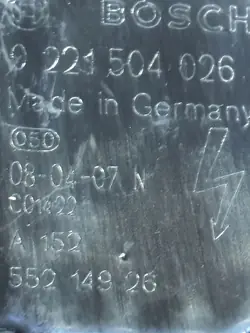 BOSCH
0 221 504 026
Made in Germany
050
08-04-07 N
C01422
A 152
552 149 26